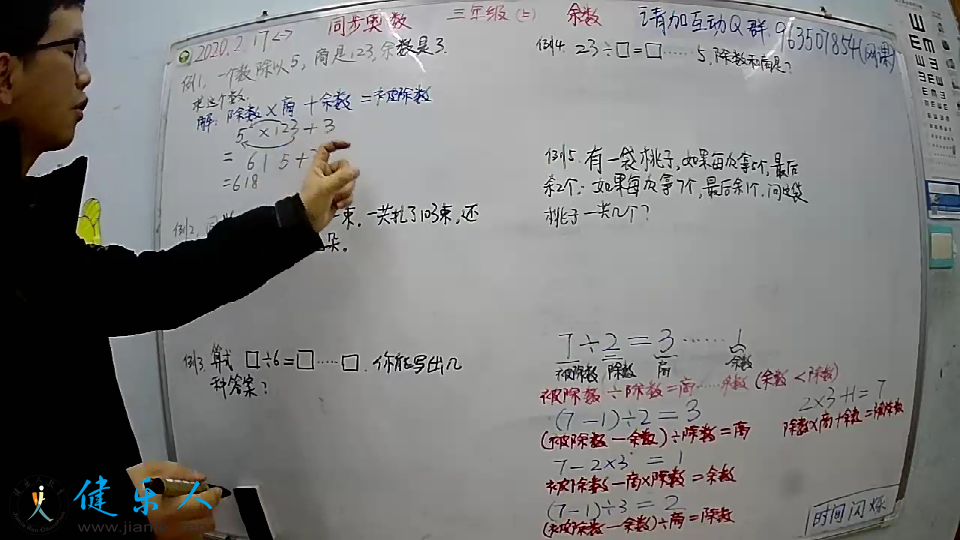 同步奥数 三年级(上) 余数 请加互动Q群963501854(网课)
2020.2.17
例1, 一个数除以5, 商是123, 余数是3.
求这个数.
解: 除数×商+余数=被除数
5×123+3
= 615+
=618
例2,
束. 一共扎了103束, 还
朵.
例3. 算式 □÷6=□……□. 你能写出几
种答案?
例4. 23÷□=□……5, 除数和商是?
例5. 有一袋桃子, 如果每次拿5个, 最后
余2个; 如果每次拿7个, 最后余1个, 问
桃子一共几个?
7÷2=3……1
被除数 除数 商 余数
被除数÷除数=商……余数 (余数<除数)
(7-1)÷2=3
(被除数-余数)÷除数=商
7-2×3=1
被除数-商×除数=余数
(7-1)÷3=2
(被除数-余数)÷商=除数
2×3+1=7
除数×商+余数=被除数
时间闪烁
健乐人